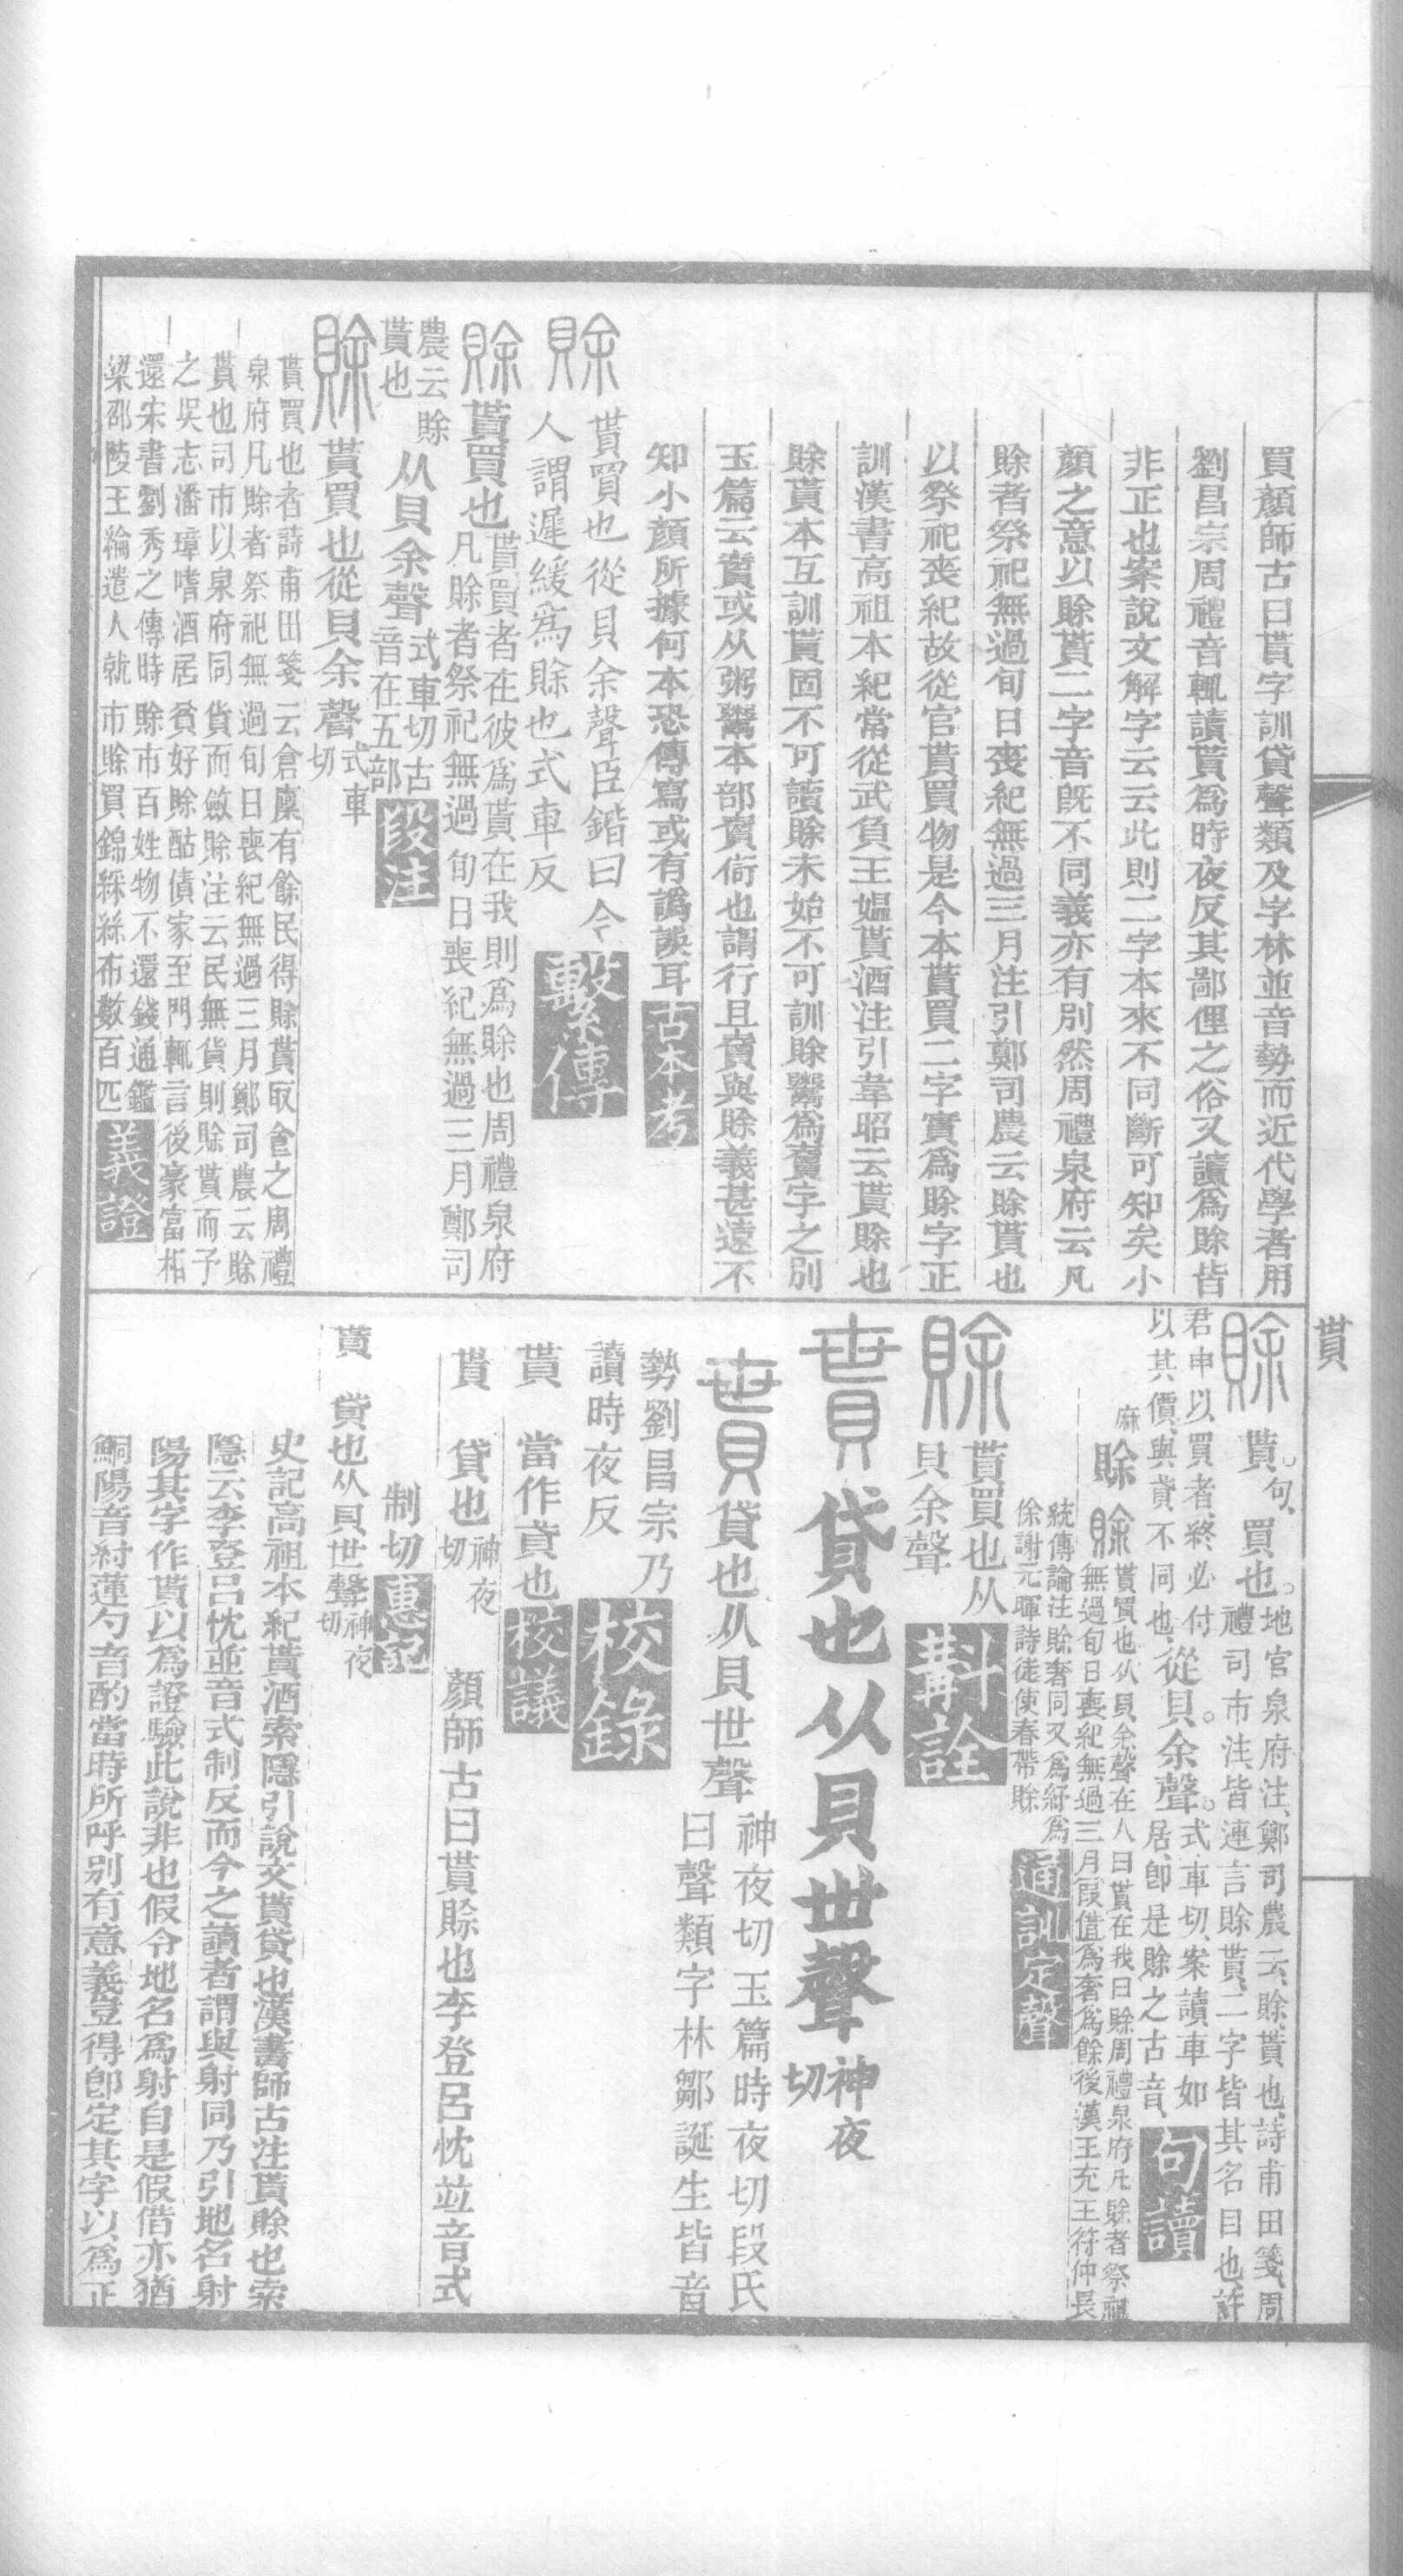 貰
買顏師古曰貰字訓貸聲類及字林並音勢而近代學者用
劉昌宗周禮音輒讀貰爲時夜反其鄙俚之俗又讀爲賒皆
非正也案說文解字云云此則二字本來不同斷可知矣小
顏之意以賒貰二字音旣不同義亦有別然周禮泉府云凡
賒者祭祀無過旬日喪紀無過三月注引鄭司農云賒貰也
以祭祀喪紀故從官貰買物是今本貰買二字實爲賒字正
訓漢書高祖本紀常從武負王媼貰酒注引韋昭云貰賒也
賒貰本互訓貰固不可讀賒未始不可訓賒鬻爲賣字之別
玉篇云賣或从粥鬻本部賣衒也謂行且賣與賒義甚遠不
知小顏所據何本恐傳寫或有譌誤耳古本考
賒貰買也從貝余聲臣鍇曰今
人謂遲緩爲賒也式車反繫傳
賒貰買也貰買者在彼爲貰在我則爲賒也周禮泉府
凡賒者祭祀無過旬日喪紀無過三月鄭司
農云賒
貰也从貝余聲式車切古
音在五部段注
賒貰買也從貝余聲式車
切
貰買也者詩甫田箋云倉廩有餘民得賒貰取食之周禮
泉府凡賒者祭祀無過旬日喪紀無過三月鄭司農云賒
貰也司市以泉府同貨而斂賒注云民無貨則賒貰而予
之吳志潘璋嗜酒居貧好賒酤債家至門輒言後豪富相
還宋書劉秀之傳時賒市百姓物不還錢通鑑
梁邵陵王綸遣人就市賒買錦綵絲布數百匹義證
賒貰句買也地官泉府注鄭司農云賒貰也詩甫田箋周
禮司市注皆連言賒貰二字皆其名目也許
君申以買者終必付
以其價與貣不同也從貝余聲式車切案讀車如
居卽是賒之古音句讀
麻
賒賒貰買也从貝余聲在人曰貰在我曰賒周禮泉府凡賒者祭祀
無過旬日喪紀無過三月叚借爲奢爲餘後漢王充王符仲長
統傳論注賒奢同又爲紓爲
徐謝元暉詩徒使春帶賒通訓定聲
賒貰買也从
貝余聲斠詮
貰貸也从貝世聲神夜
切
貰貸也从貝世聲神夜切玉篇時夜切段氏
曰聲類字林鄒誕生皆音
勢劉昌宗乃
讀時夜反校錄
貰當作貣也校議
貰貸也神夜
切顏師古曰貰賒也李登呂忱並音式
制切惠記
貰貸也从貝世聲神夜
切
史記高祖本紀貰酒索隱引說文貰貸也漢書師古注貰賒也索
隱云李登呂忱並音式制反而今之讀者謂與射同乃引地名射
陽其字作貰以爲證驗此說非也假令地名爲射自是假借亦猶
鮦陽音紂蓮勺音酌當時所呼別有意義豈得卽定其字以爲正